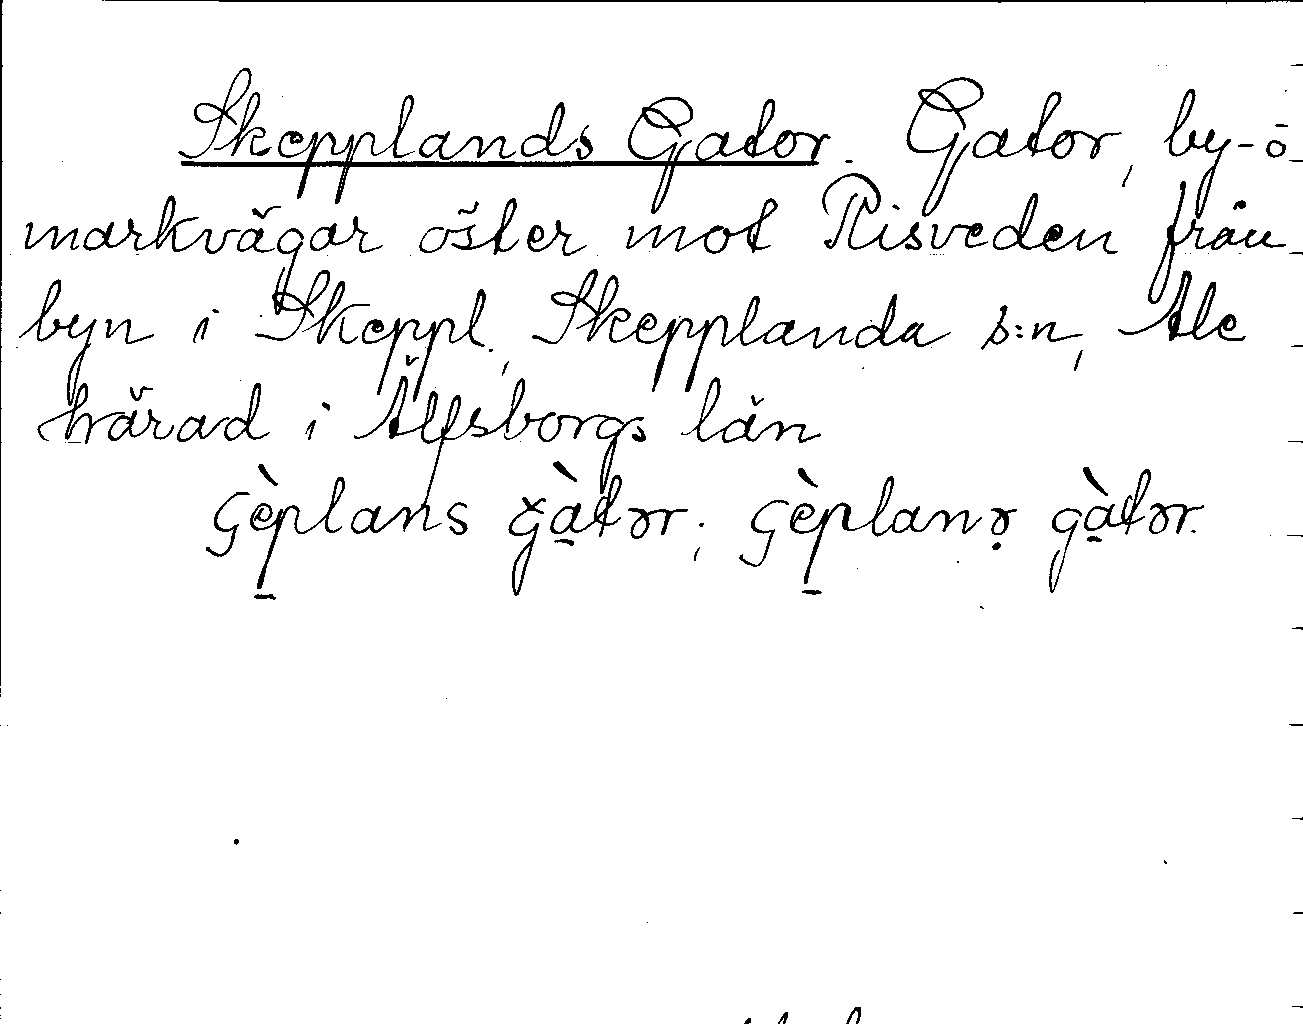 Skepplands Gator. Gator, by- o
markvägar öster mot Risveden från
byn i Skeppl., Skepplanda s:n, Ale
härad i Älfsborgs län
ɕèplans gàtər, ɕèplanɘ̣ gàtər.